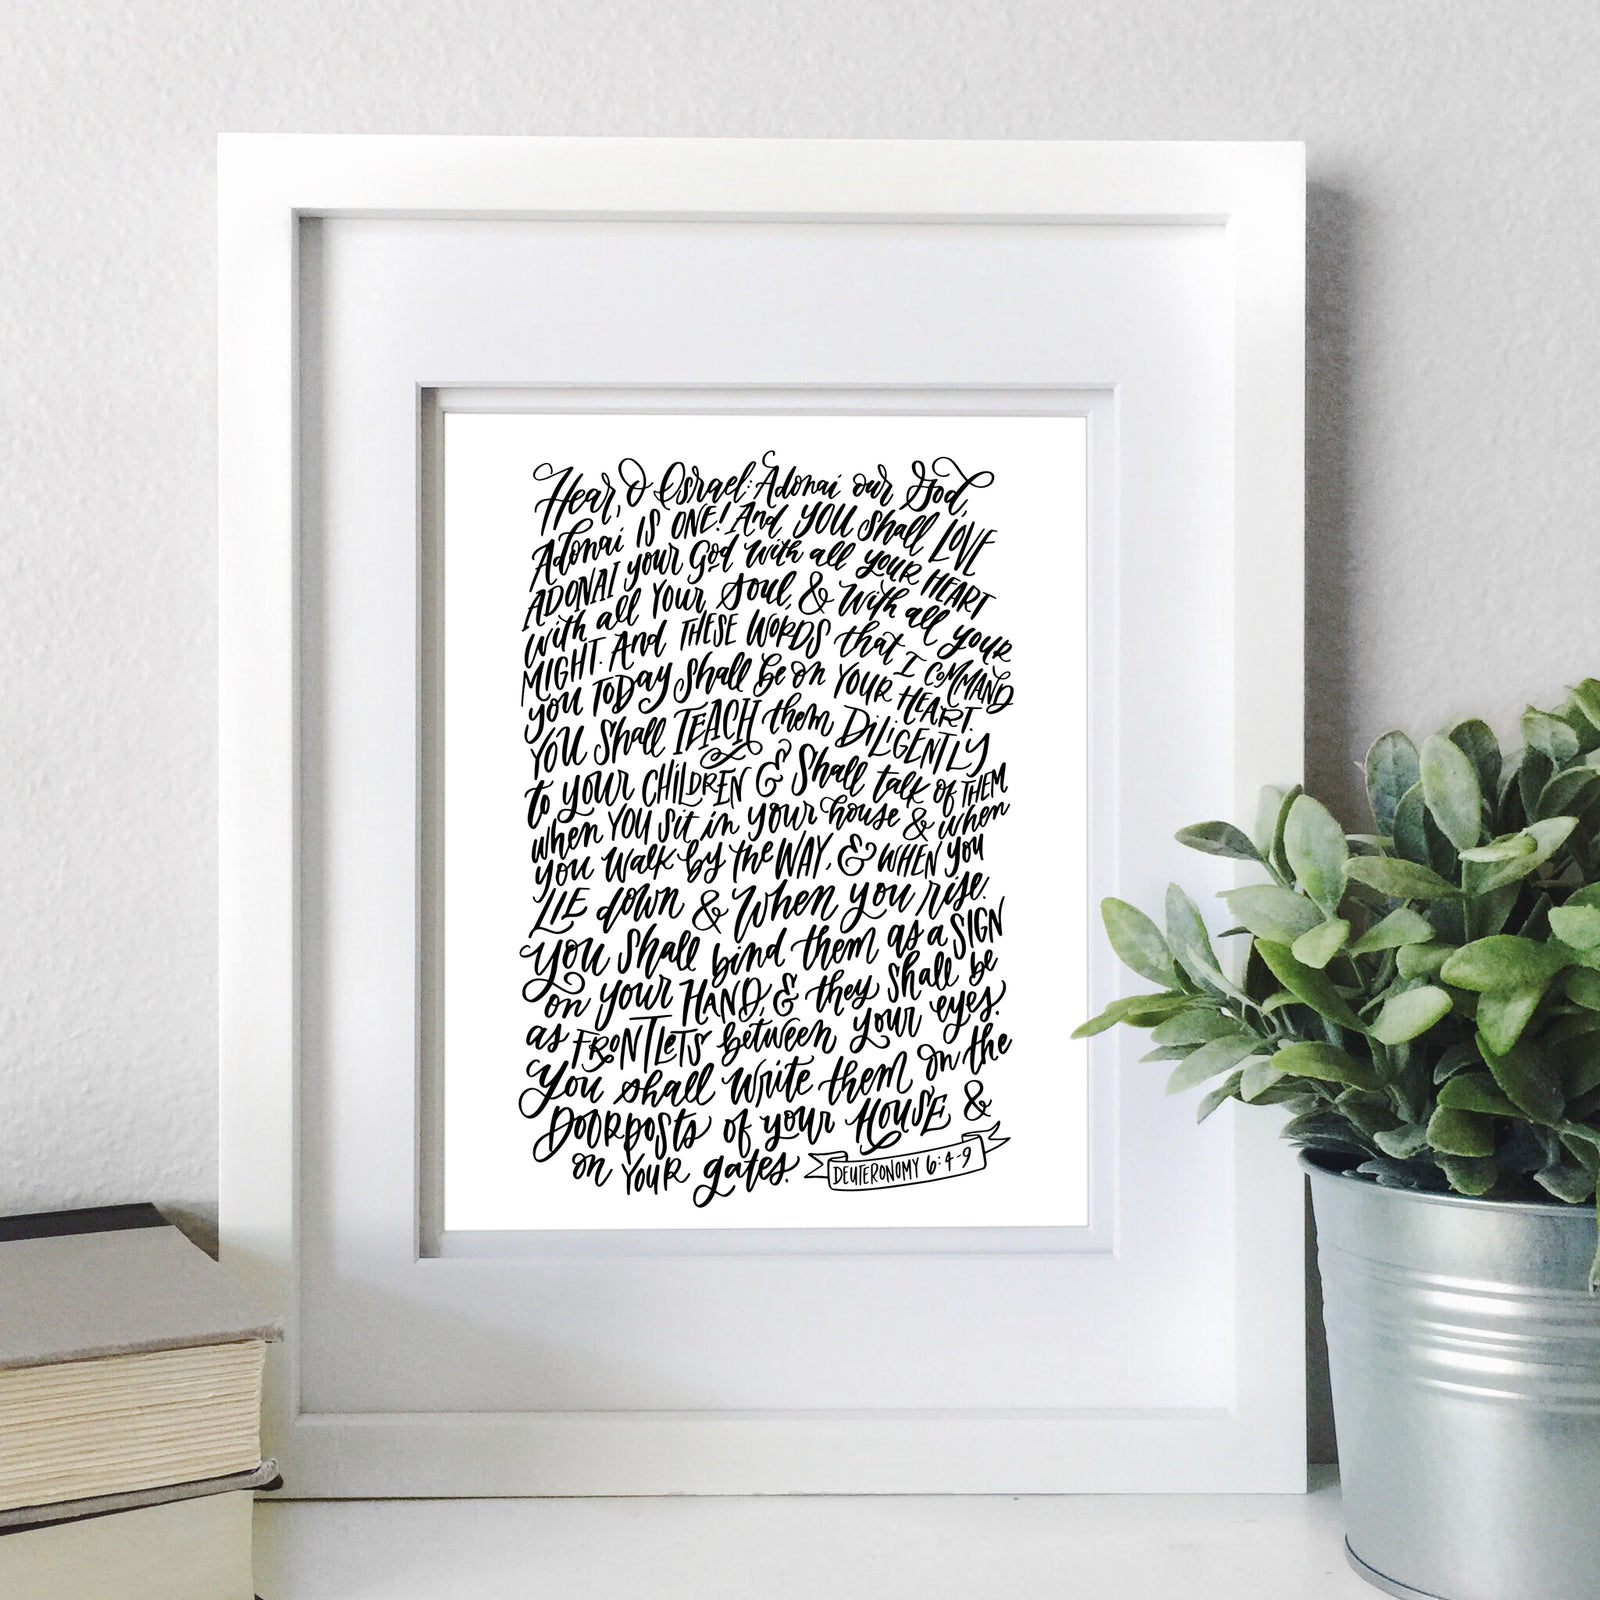 Hear, O Israel: Adonai our God,
Adonai IS ONE! And YOU shall LOVE
ADONAI your God with all your HEART
with all your soul, & with all your
MIGHT. And THESE WORDS that I COMMAND
you TODAY shall be on YOUR HEART.
YOU shall TEACH them DILIGENTLY
to your CHILDREN & shall talk of THEM
when YOU sit in your house & when
you walk by the WAY, & WHEN you
LIE down & when you rise.
You shall bind them as a SIGN
on your HAND, & they shall be
as FRONTLETS between your eyes.
You shall write them on the
DOORPOSTS of your HOUSE &
on YOUR gates. DEUTERONOMY 6:4-9